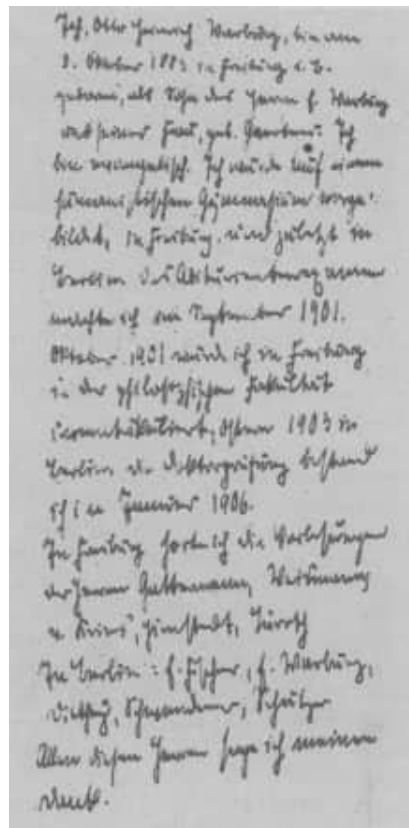 Ich, Otto Heinrich Warburg, bin am
8. Oktober 1883 in Freiburg i. B.
geboren, als Sohn des Herrn E. Warburg
und seiner Frau, geb. Gaertner. Ich
bin evangelisch. Ich wurde auf einem
humanistischen Gymnasium vorge-
bildet, in Freiburg und zuletzt in
Berlin. Das Abiturientenexamen
machte ich im September 1901.
Oktober 1901 wurde ich in Freiburg
in der philosophischen Fakultät
immatrikuliert, Ostern 1903 in
Berlin. Die Doktorprüfung bestand
ich im Januar 1906.
In Freiburg hörte ich die Vorlesungen
der Herren Gattermann, Weismann,
v. Kries, Himstedt, Lüroth
In Berlin: E. Fischer, E. Warburg,
Dilthey, Schwendener,
Allen diesen Herren sage ich meinen
Dank.